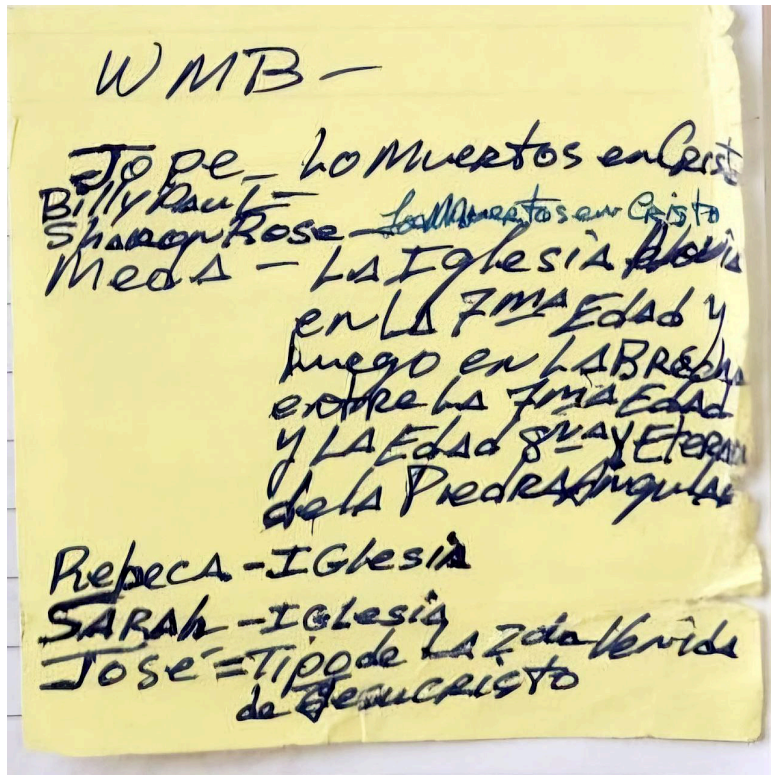 WMB -
Jope - Lo Muertos en Crist
Billy Paul -
Sharon Rose - Los Muertos en Cristo
Meda - LA Iglesia Novia
en LA 7ma Edad y
luego en LA Brecha
entre LA 7ma Edad
y LA Edad 8va y Eterna
de la Piedra Angular
Rebeca - Iglesia
SARAh - Iglesia
José = Tipo de LA 2da Venida
de Jesucristo